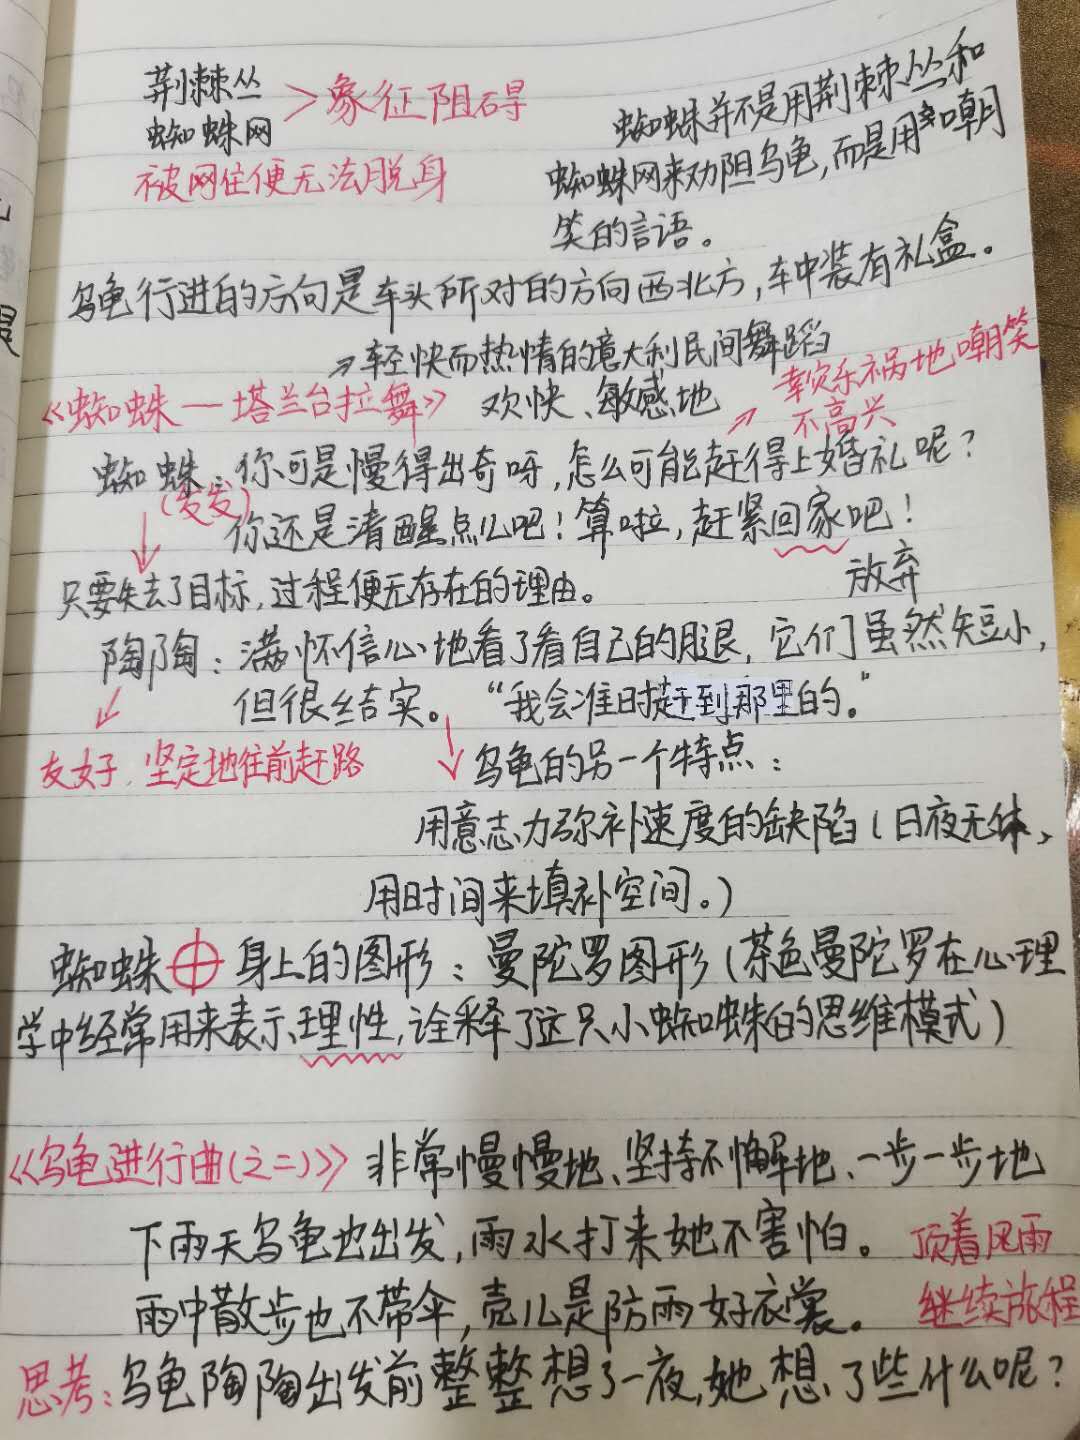 荆棘丛
蜘蛛网
>象征阻碍
被网住便无法脱身
蜘蛛并不是用荆棘丛和
蜘蛛网来劝阻乌龟,而是用嘲
笑的言语。
乌龟行进的方向是车头所对的方向西北方,车中装有礼盒。
→轻快而热情的意大利民间舞蹈
《蜘蛛—塔兰台拉舞》 欢快、敏感地
幸灾乐祸地嘲笑
不高兴
蜘蛛:你可是慢得出奇呀,怎么可能赶得上婚礼呢?
(发发)
你还是清醒点儿吧!算啦,赶紧回家吧!
放弃
只要失去了目标,过程便无存在的理由。
陶陶:满怀信心地看了看自己的腿,它们虽然短小,
但很结实。“我会准时赶到那里的。”
友好、坚定地往前赶路
乌龟的另一个特点:
用意志力弥补速度的缺陷(日夜无休、
用时间来填补空间。)
蜘蛛身上的图形:曼陀罗图形(茶色曼陀罗在心理
学中经常用来表示理性,诠释了这只小蜘蛛的思维模式)
《乌龟进行曲(之二)》非常慢慢地、坚持不懈地、一步一步地
下雨天乌龟也出发,雨水打来她不害怕。 顶着风雨
雨中散步也不带伞,壳儿是防雨好衣裳。 继续旅程
思考:乌龟陶陶出发前整整想了一夜,她想了些什么呢?